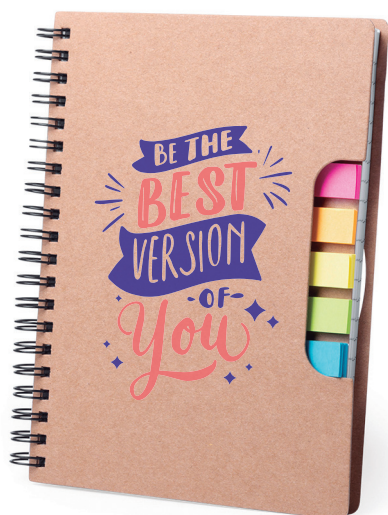 BE THE
BEST
VERSION
-OF-
You